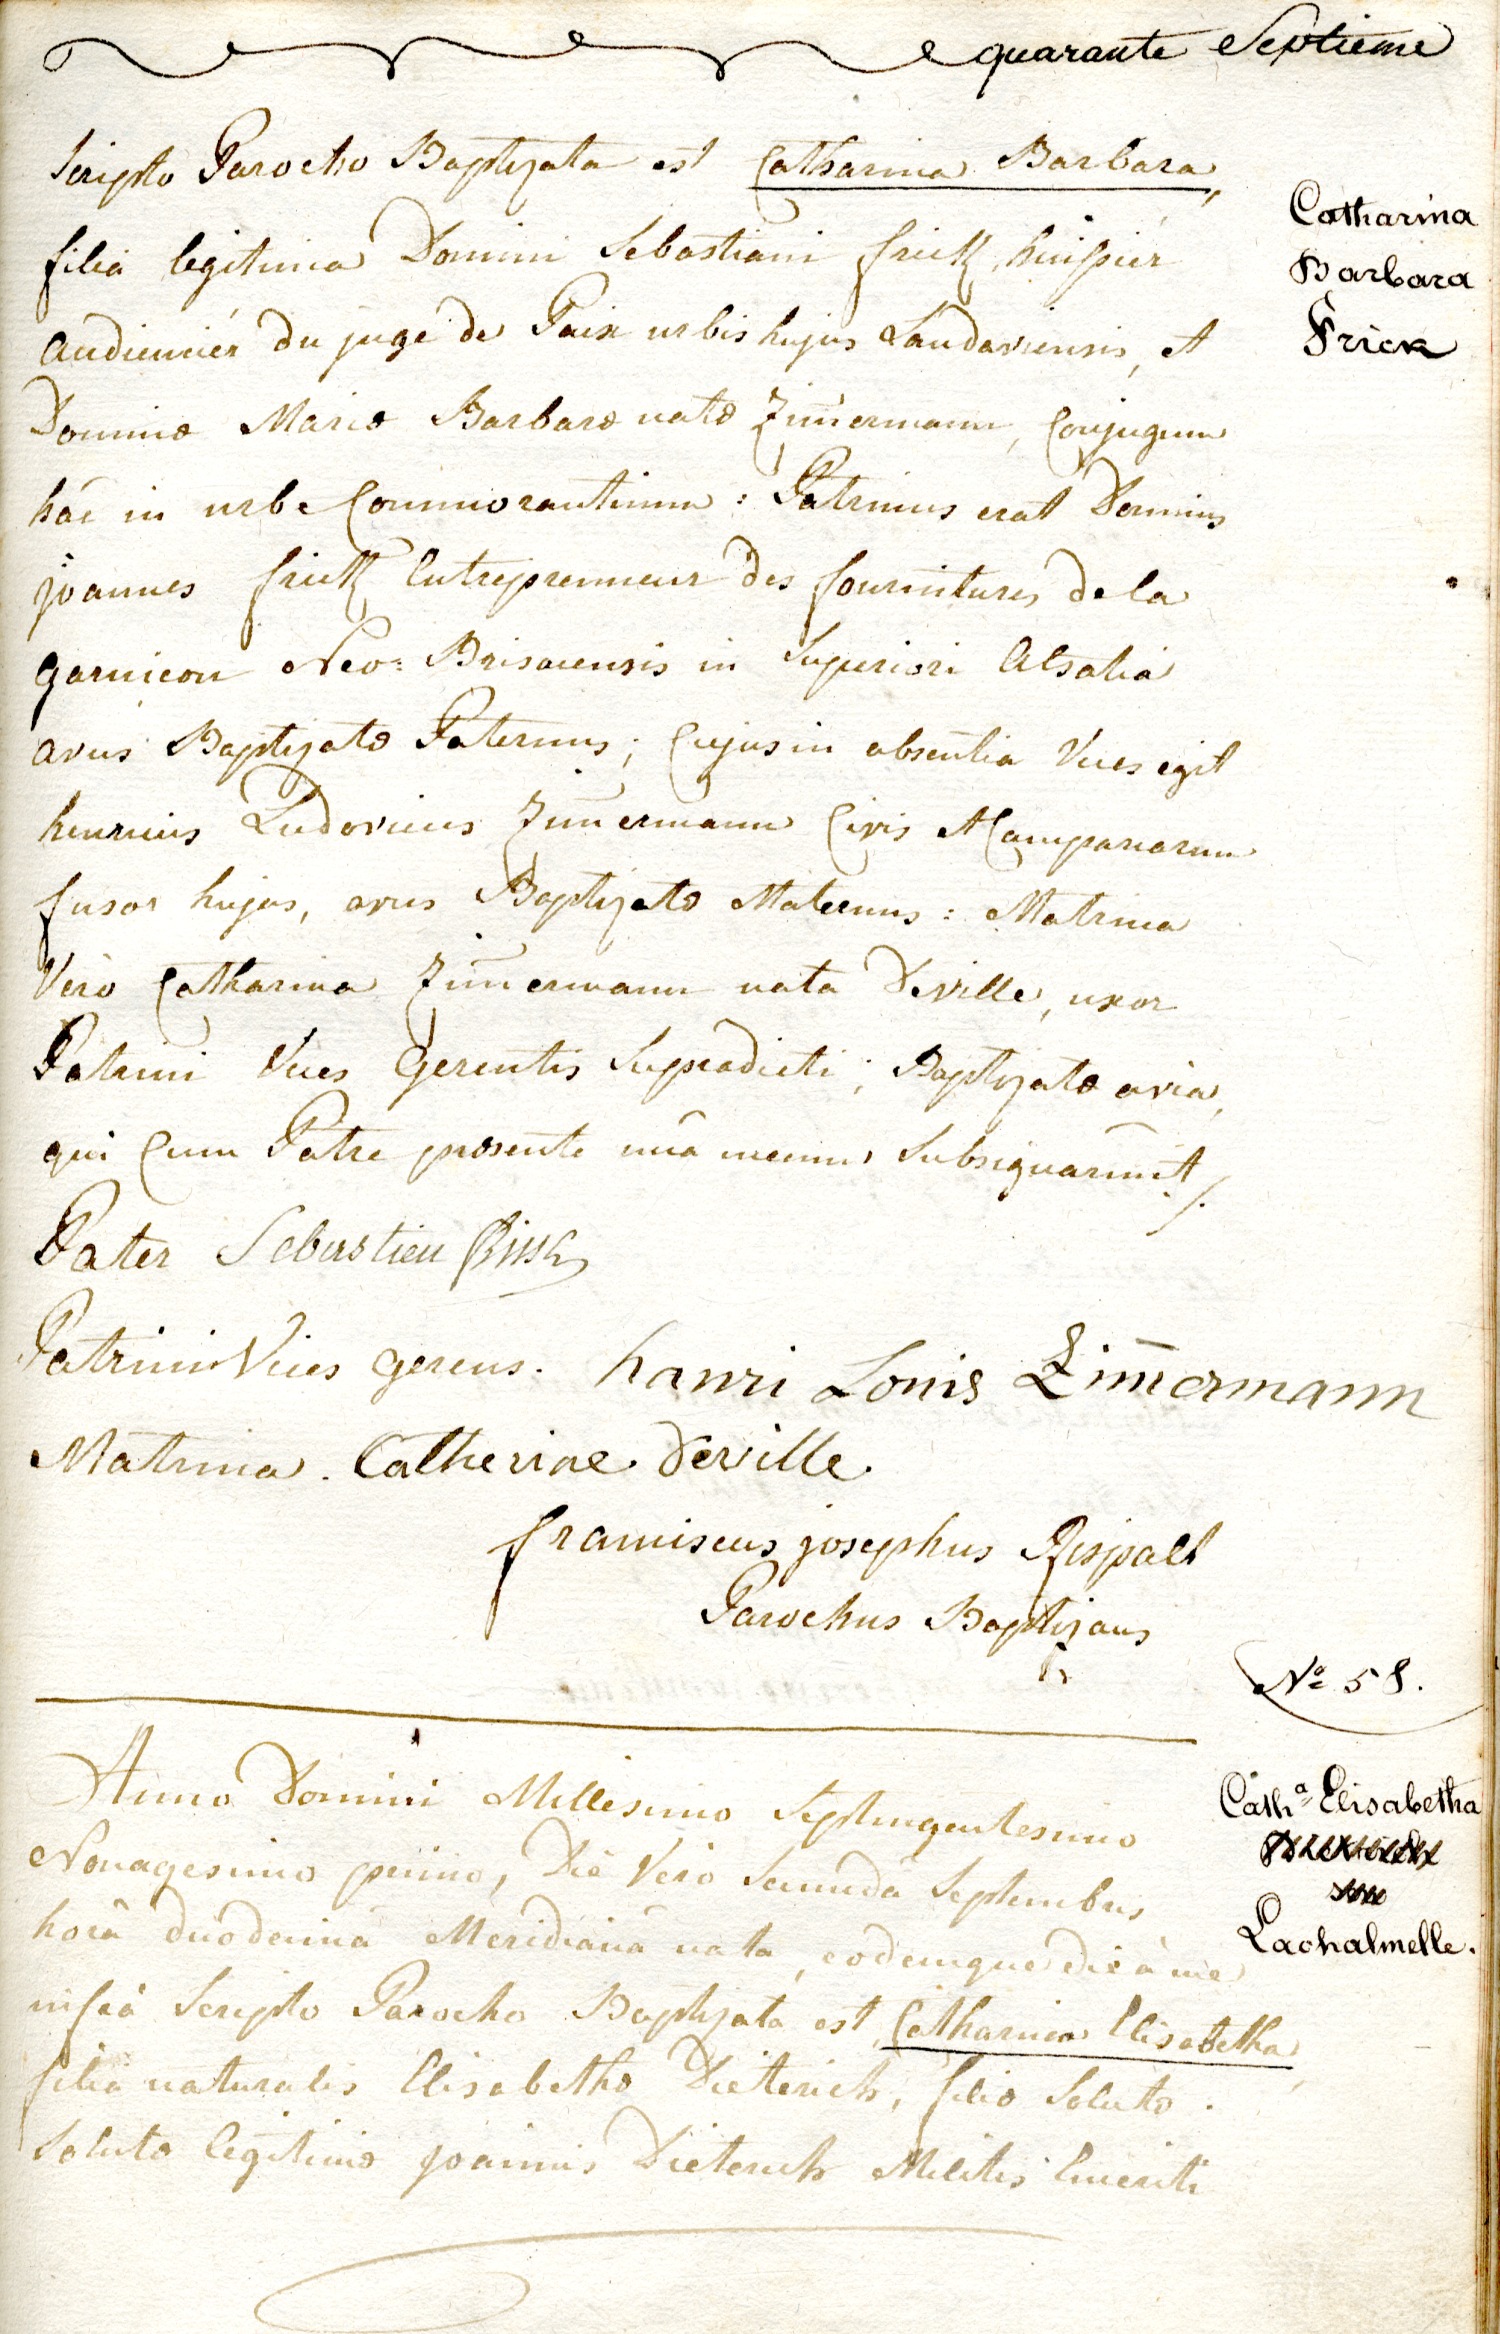 quarante Septieme
scripto Parocho Baptizata est Catharina Barbara,
filia legitima Domini Sebastiani frick, huissier
audiencier du juge de Paix urbis hujus Landaviensis, et
Dominæ Mariæ Barbaræ natæ Zim̄ermann, Conjugum
hác in urbe Commorantium : Patrinus erat Dominus
joannes frick Entreprenneur des fournitures de la
garnicon Neo= Brisacensis in Superiori Alsatiâ
avus Baptizatæ Paternus ; Cujus in absentia Vices egit
henricus Ludovicus Zim̄ermann Civis et Campanarum
fusor hujas, avus Baptizatæ Maternus : Matrina
Verò Catharina Zim̄ermann nata Deville, uxor
Patrini Vices Gerentis Supradicti ; Baptizatæ avia,
qui Cum Patre præsente unà mecum Subsignarunt ./.
Pater Sebastien Frick
Patrini Vices gerens. hanri Louis Zim̄ermann
Matrina. Catherine Deville.
franciscus josephus Rispalt
Parochus Baptizans
Catharina
Barbara
Frick
Nº 58.
Anno Domini Millesimo Septingentesimo
Nonagesimo primo, Die Verò Secundâ Septembris
horâ duodecimâ Meridianâ nata, eodemque die à me
infrà Scripto Parocho Baptizata est Catharina Elisabetha,
filia naturalis Elisabethæ Dieterich, filiæ Solutæ.
Solutæ legitimæ joannis Dieterich Militis Emeriti
Cathª Elisabetha
Lachalmelle.